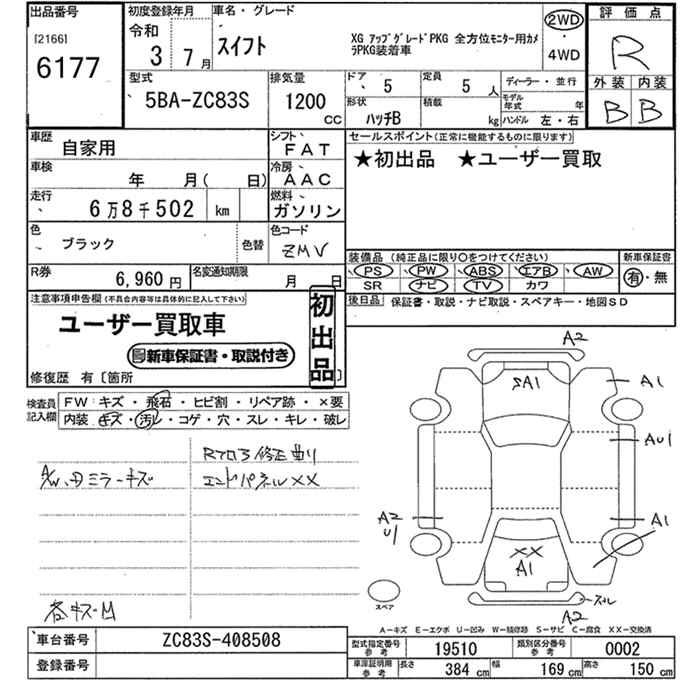 出品番号
[2166]
6177
初度登録年月
令和
3 7月
車名・グレード
スイフト
XG アップグレードPKG 全方位モニター用カメ
ラPKG装着車
2WD
・
4WD
評価点
R
外装 内装
B B
型式
5BA-ZC83S
排気量
1200
CC
ドア
5
定員
5 人
ディーラー・並行
形状
ハッチB
積載
kg
モデル
年式 年
ハンドル 左・右
車歴
自家用
シフト
FAT
車検
年 月( 日)
冷房
AAC
走行
6万8千502 km
燃料
ガソリン
色
ブラック
色替
色コード
ZMV
R券
6,960円
名変通知期限
月 日
セールスポイント(正常に機能するものに限ります)
★初出品 ★ユーザー買取
装備品(純正品に限り〇をつけてください)
PS ・ PW ・ ABS ・ エアB ・ AW
SR ナビ TV カワ
新車保証書
有・無
後日品 保証書・取説・ナビ取説・スペアキー・地図SD
注意事項申告欄(不具合内容等は具体的に記入して下さい)
ユーザー買取車
新車保証書・取説付き
初出品
修復歴 有〔箇所 〕
検査員
記入欄
FW:キズ・飛石・ヒビ割・リペア跡・×要
内装:キズ・汚レ・コゲ・穴・スレ・キレ・破レ
Rフロア修正曲り
A/W、ミラーキズ
エンドパネルXX
各キズ凹
A2
SA1
A1
AU1
A2
U1
A1
XX
A1
スレ
A2
スペア
A-キズ E-エクボ U-凹み W-補修跡 S-サビ C-腐食 XX-交換済
車台番号
ZC83S-408508
登録番号
型式指定番号
参考
19510
類別区分番号
参考
0002
車庫証明用
参考
長さ 384 cm
幅 169 cm
高さ 150 cm